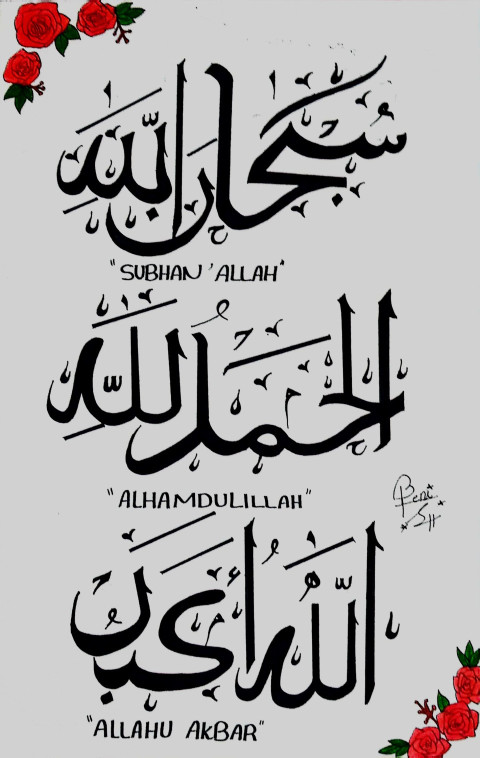 سُبْحَانَ اللَّهِ
"SUBHAN 'ALLAH"
الْحَمْدُ لِلَّهِ
"ALHAMDULILLAH"
اللَّهُ أَكْبَرُ
"ALLAHU AKBAR"